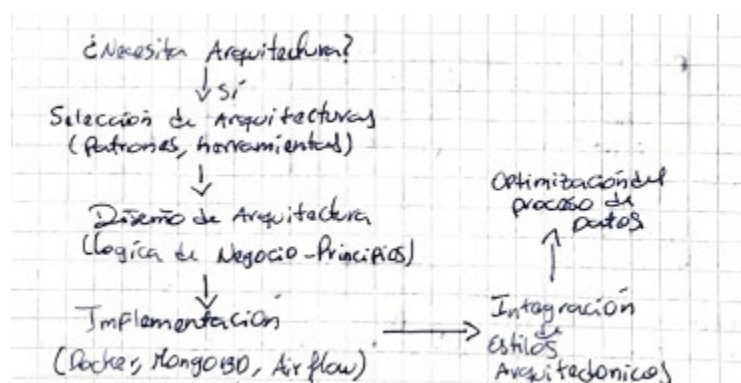 ¿Necesita Arquitectura?
Sí
Selección de Arquitecturas
(Patrones, herramientas)
Diseño de Arquitectura
(Logica de Negocio - Principios)
Implementación
(Docker, MongoBD, Airflow)
Integración
de
Estilos
Arquitectonicos
Optimización del
proceso de
Datos